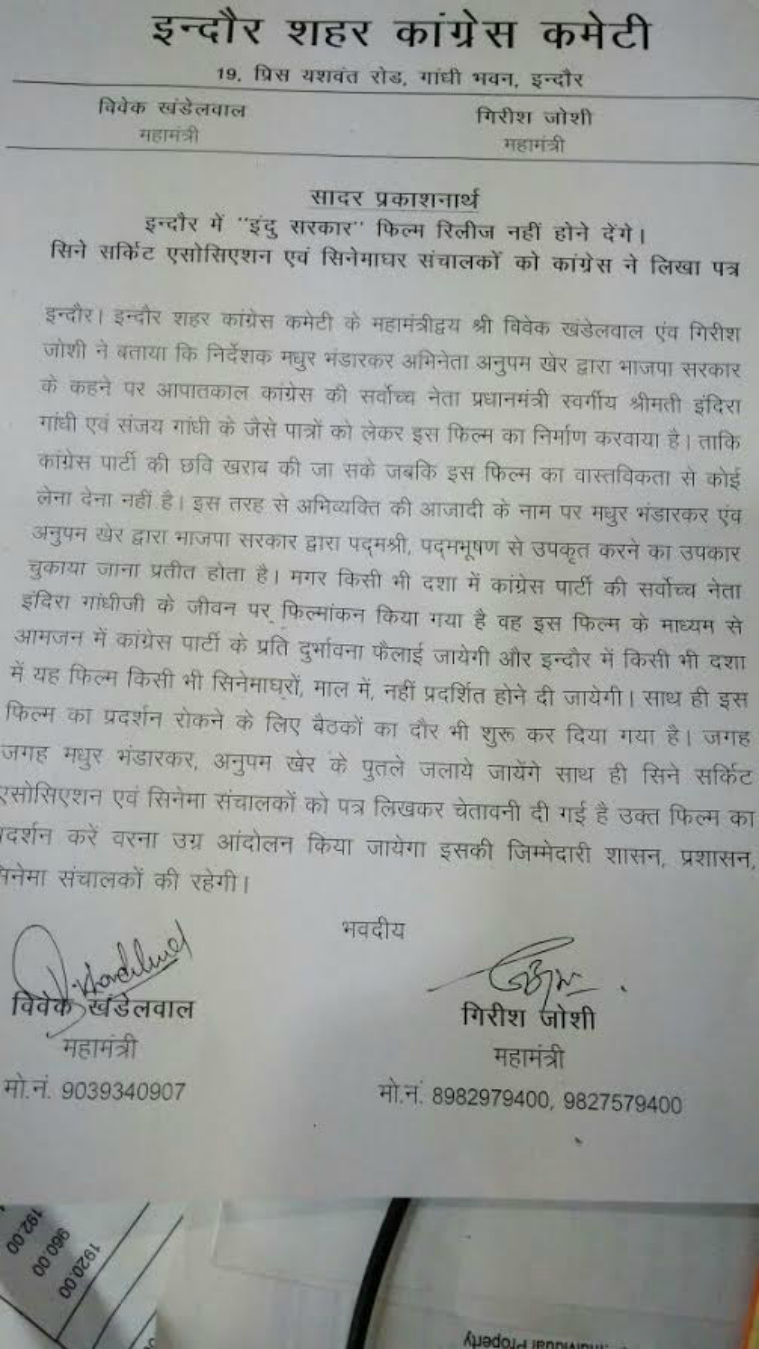 इन्दौर शहर कांग्रेस कमेटी
19, प्रिस यशवंत रोड, गांधी भवन, इन्दौर
विवेक खंडेलवाल
महामंत्री
गिरीश जोशी
महामंत्री
सादर प्रकाशनार्थ
इन्दौर में "इंदु सरकार" फिल्म रिलीज नहीं होने देंगे।
सिने सर्किट एसोसिएशन एवं सिनेमाघर संचालकों को कांग्रेस ने लिखा पत्र
इन्दौर। इन्दौर शहर कांग्रेस कमेटी के महामंत्रीद्वय श्री विवेक खंडेलवाल एंव गिरीश
जोशी ने बताया कि निर्देशक मधुर भंडारकर अभिनेता अनुपम खेर द्वारा भाजपा सरकार
के कहने पर आपातकाल कांग्रेस की सर्वोच्च नेता प्रधानमंत्री स्वर्गीय श्रीमती इंदिरा
गांधी एवं संजय गांधी के जैसे पात्रों को लेकर इस फिल्म का निर्माण करवाया है। ताकि
कांग्रेस पार्टी की छवि खराब की जा सके जबकि इस फिल्म का वास्तविकता से कोई
लेना देना नहीं है। इस तरह से अभिव्यक्ति की आजादी के नाम पर मधुर भंडारकर एंव
अनुपम खेर द्वारा भाजपा सरकार द्वारा पद्मश्री, पद्मभूषण से उपकृत करने का उपकार
चुकाया जाना प्रतीत होता है। मगर किसी भी दशा में कांग्रेस पार्टी की सर्वोच्च नेता
इंदिरा गांधीजी के जीवन पर फिल्मांकन किया गया है वह इस फिल्म के माध्यम से
आमजन में कांग्रेस पार्टी के प्रति दुर्भावना फैलाई जायेगी और इन्दौर में किसी भी दशा
में यह फिल्म किसी भी सिनेमाघरों, माल में, नहीं प्रदर्शित होने दी जायेगी। साथ ही इस
फिल्म का प्रदर्शन रोकने के लिए बैठकों का दौर भी शुरू कर दिया गया है। जगह
जगह मधुर भंडारकर, अनुपम खेर के पुतले जलाये जायेंगे साथ ही सिने सर्किट
एसोसिएशन एवं सिनेमा संचालकों को पत्र लिखकर चेतावनी दी गई है उक्त फिल्म का
प्रदर्शन करें वरना उग्र आंदोलन किया जायेगा इसकी जिम्मेदारी शासन, प्रशासन,
सिनेमा संचालकों की रहेगी।
भवदीय
विवेक खंडेलवाल
महामंत्री
मो.नं. 9039340907
गिरीश जोशी
महामंत्री
मो.नं. 8982979400, 9827579400
192.00
960.00
1920.00
Individual Property